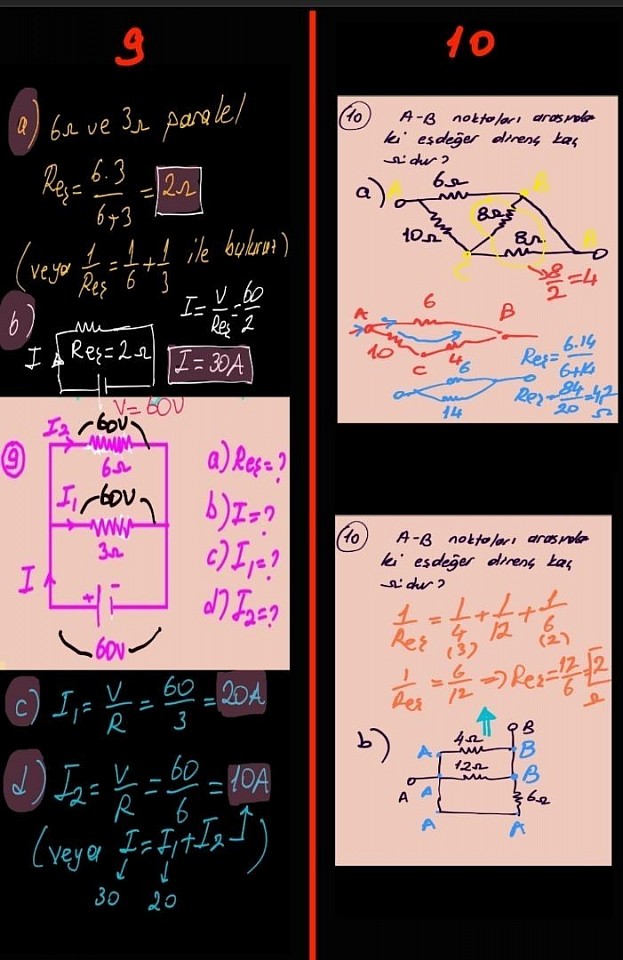 9
a) 6Ω ve 3Ω paralel
Reş = 6.3 / 6+3 = 2Ω
(veya 1/Reş = 1/6 + 1/3 ile buluruz)
b)
I = V/Reş = 60/2
I
Reş = 2Ω
I = 30A
V = 60V
9
I2
60V
6Ω
I1
60V
3Ω
I
+ -
60V
a) Reş = ?
b) I = ?
c) I1 = ?
d) I2 = ?
c) I1 = V/R = 60/3 = 20A
d) I2 = V/R = 60/6 = 10A
(veya I = I1 + I2)
30 20
10
10 A-B noktaları arasında
ki eşdeğer direnç kaç
Ω dur?
a)
A
6Ω
B
8Ω
10Ω
8Ω
B
C
8/2 = 4
A
6
B
10
C
4
Reş = 6.14 / 6+14
6
14
Reş = 84/20 = 4,2
Ω
10 A-B noktaları arasında
ki eşdeğer direnç kaç
Ω dur?
1/Reş = 1/4 + 1/12 + 1/6
(3) (2)
1/Reş = 6/12 => Reş = 12/6 = 2
Ω
b)
B
A
4Ω
B
12Ω
B
A
A
6Ω
A
A